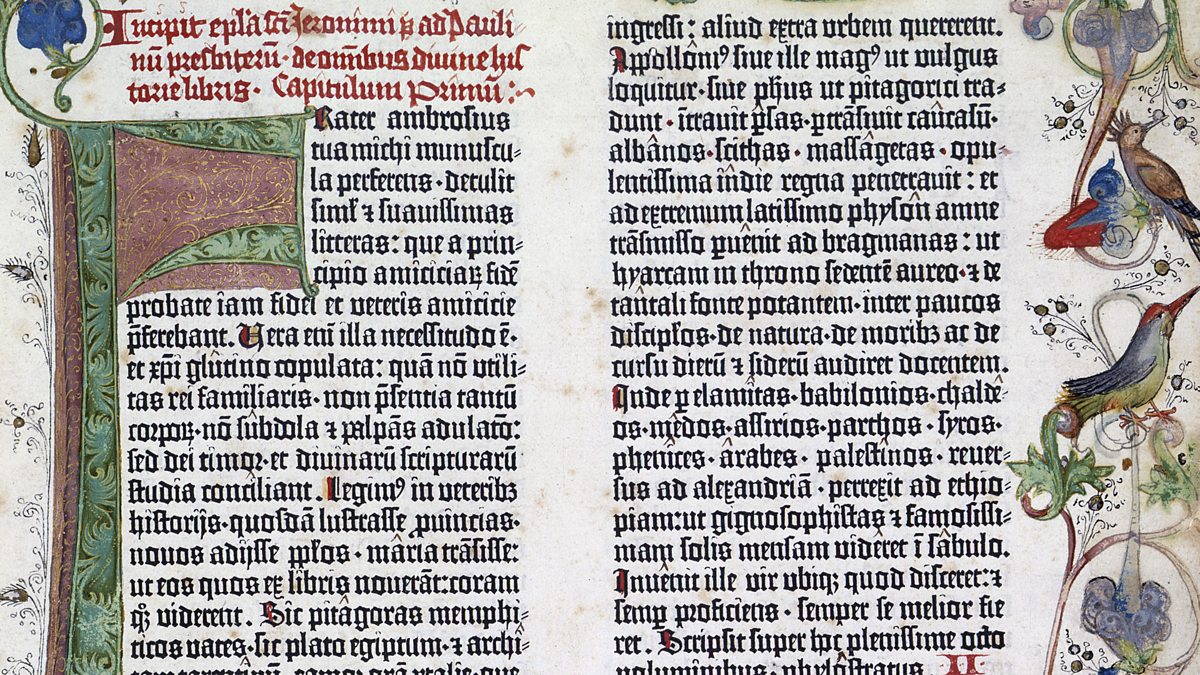 Incipit epl̃a sc̃i Jeronimi p̃b ad Pauli-
nū presbiterū · de omībus divine his
torie libris · Capitulum Primū :~
Frater ambrosius
tua michi munuscu-
la perferens · detulit
sim̃l ⁊ suavissimas
litteras : que a prin-
cipio amiciciaꝝ fidē
probate iam fidei et veteris amicicie
p̃ferebant. Vera em̄ illa necessitudo ē·
et xp̄i glûtino copulata : quā nō vtili-
tas rei familiaris · non p̃sentia tantū
corpoꝝ · nō sûbdola ⁊ palpās adulatõ :
sed dei timoꝛ · et divinarū scripturarū
studia conciliant. Legimꝰ in veteribꝫ
historijs · quosdā lustrasse ꝓuincias ·
novos adijsse ppl̃os · mâria trãsisse :
ut eos quos ex libris noverāt : coram
qꝫ viderent. Sic pitâgoras memphi-
ticos vates · sic plato egiptum · ⁊ archî-
tam tarentinū · eamqꝫ oram ytalie · que
ingressi : aliud extra vrbem quererent.
Appollôniꝰ sive ille magꝰ ut vulgus
loquitur · sive ph̃us ut pitagorici tra-
dunt · ītravit p̃sas · ꝑtrãsivit câucasū·
albânos · scithas · massâgetas · opu-
lentissima īndie regna penetravit : et
ad extremum latissimo physôn amne
trãsmisso ꝑvenit ad bragmanas : ut
hyarcam in throno sedentē aureo · ⁊ de
tãntali fonte potantem · inter paucos
discipl̃os · de natura · de moribꝫ ac de
cursu dierū ⁊ siderū audiret docentem.
Inde ꝑ elamîtas · babilonios · chaldê-
os · mêdos · assirios · parthos · syros ·
phenîces · ârabes · palestînos · rever-
sus ad alexandriā · perrexit ad ethio-
piam : ut gignosophistas ⁊ famosissi-
mam solis mensam vidêret ī sâbulo.
Invēnit ille vir vbiqꝫ quod disceret : ⁊
semꝑ proficiens · semper se melior fie
ret. Scripsit super hoc plenissime octo
voluminibus · phylôstratus. II